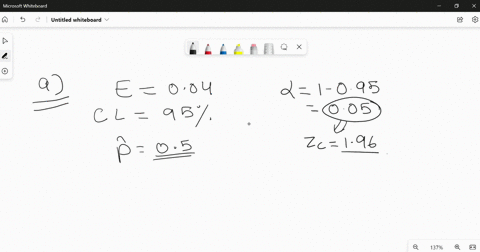 Microsoft Whiteboard
Untitled whiteboard
a)
E = 0.04
CL = 95%
p̂ = 0.5
α = 1-0.95
= 0.05
Zc = 1.96
137%